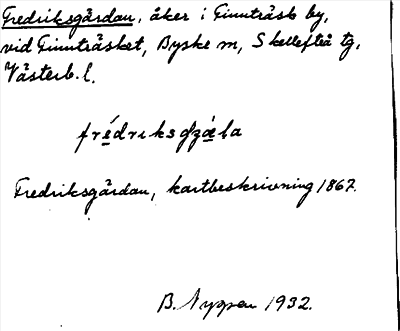 Fredriksgårdan, åker i Finnträsk by,
vid Finnträsket, Byske sn, Skellefteå tg,
Västerb. l.
Fredriksgårdan, kartbeskrivning 1867.
B. Nyppen 1932.